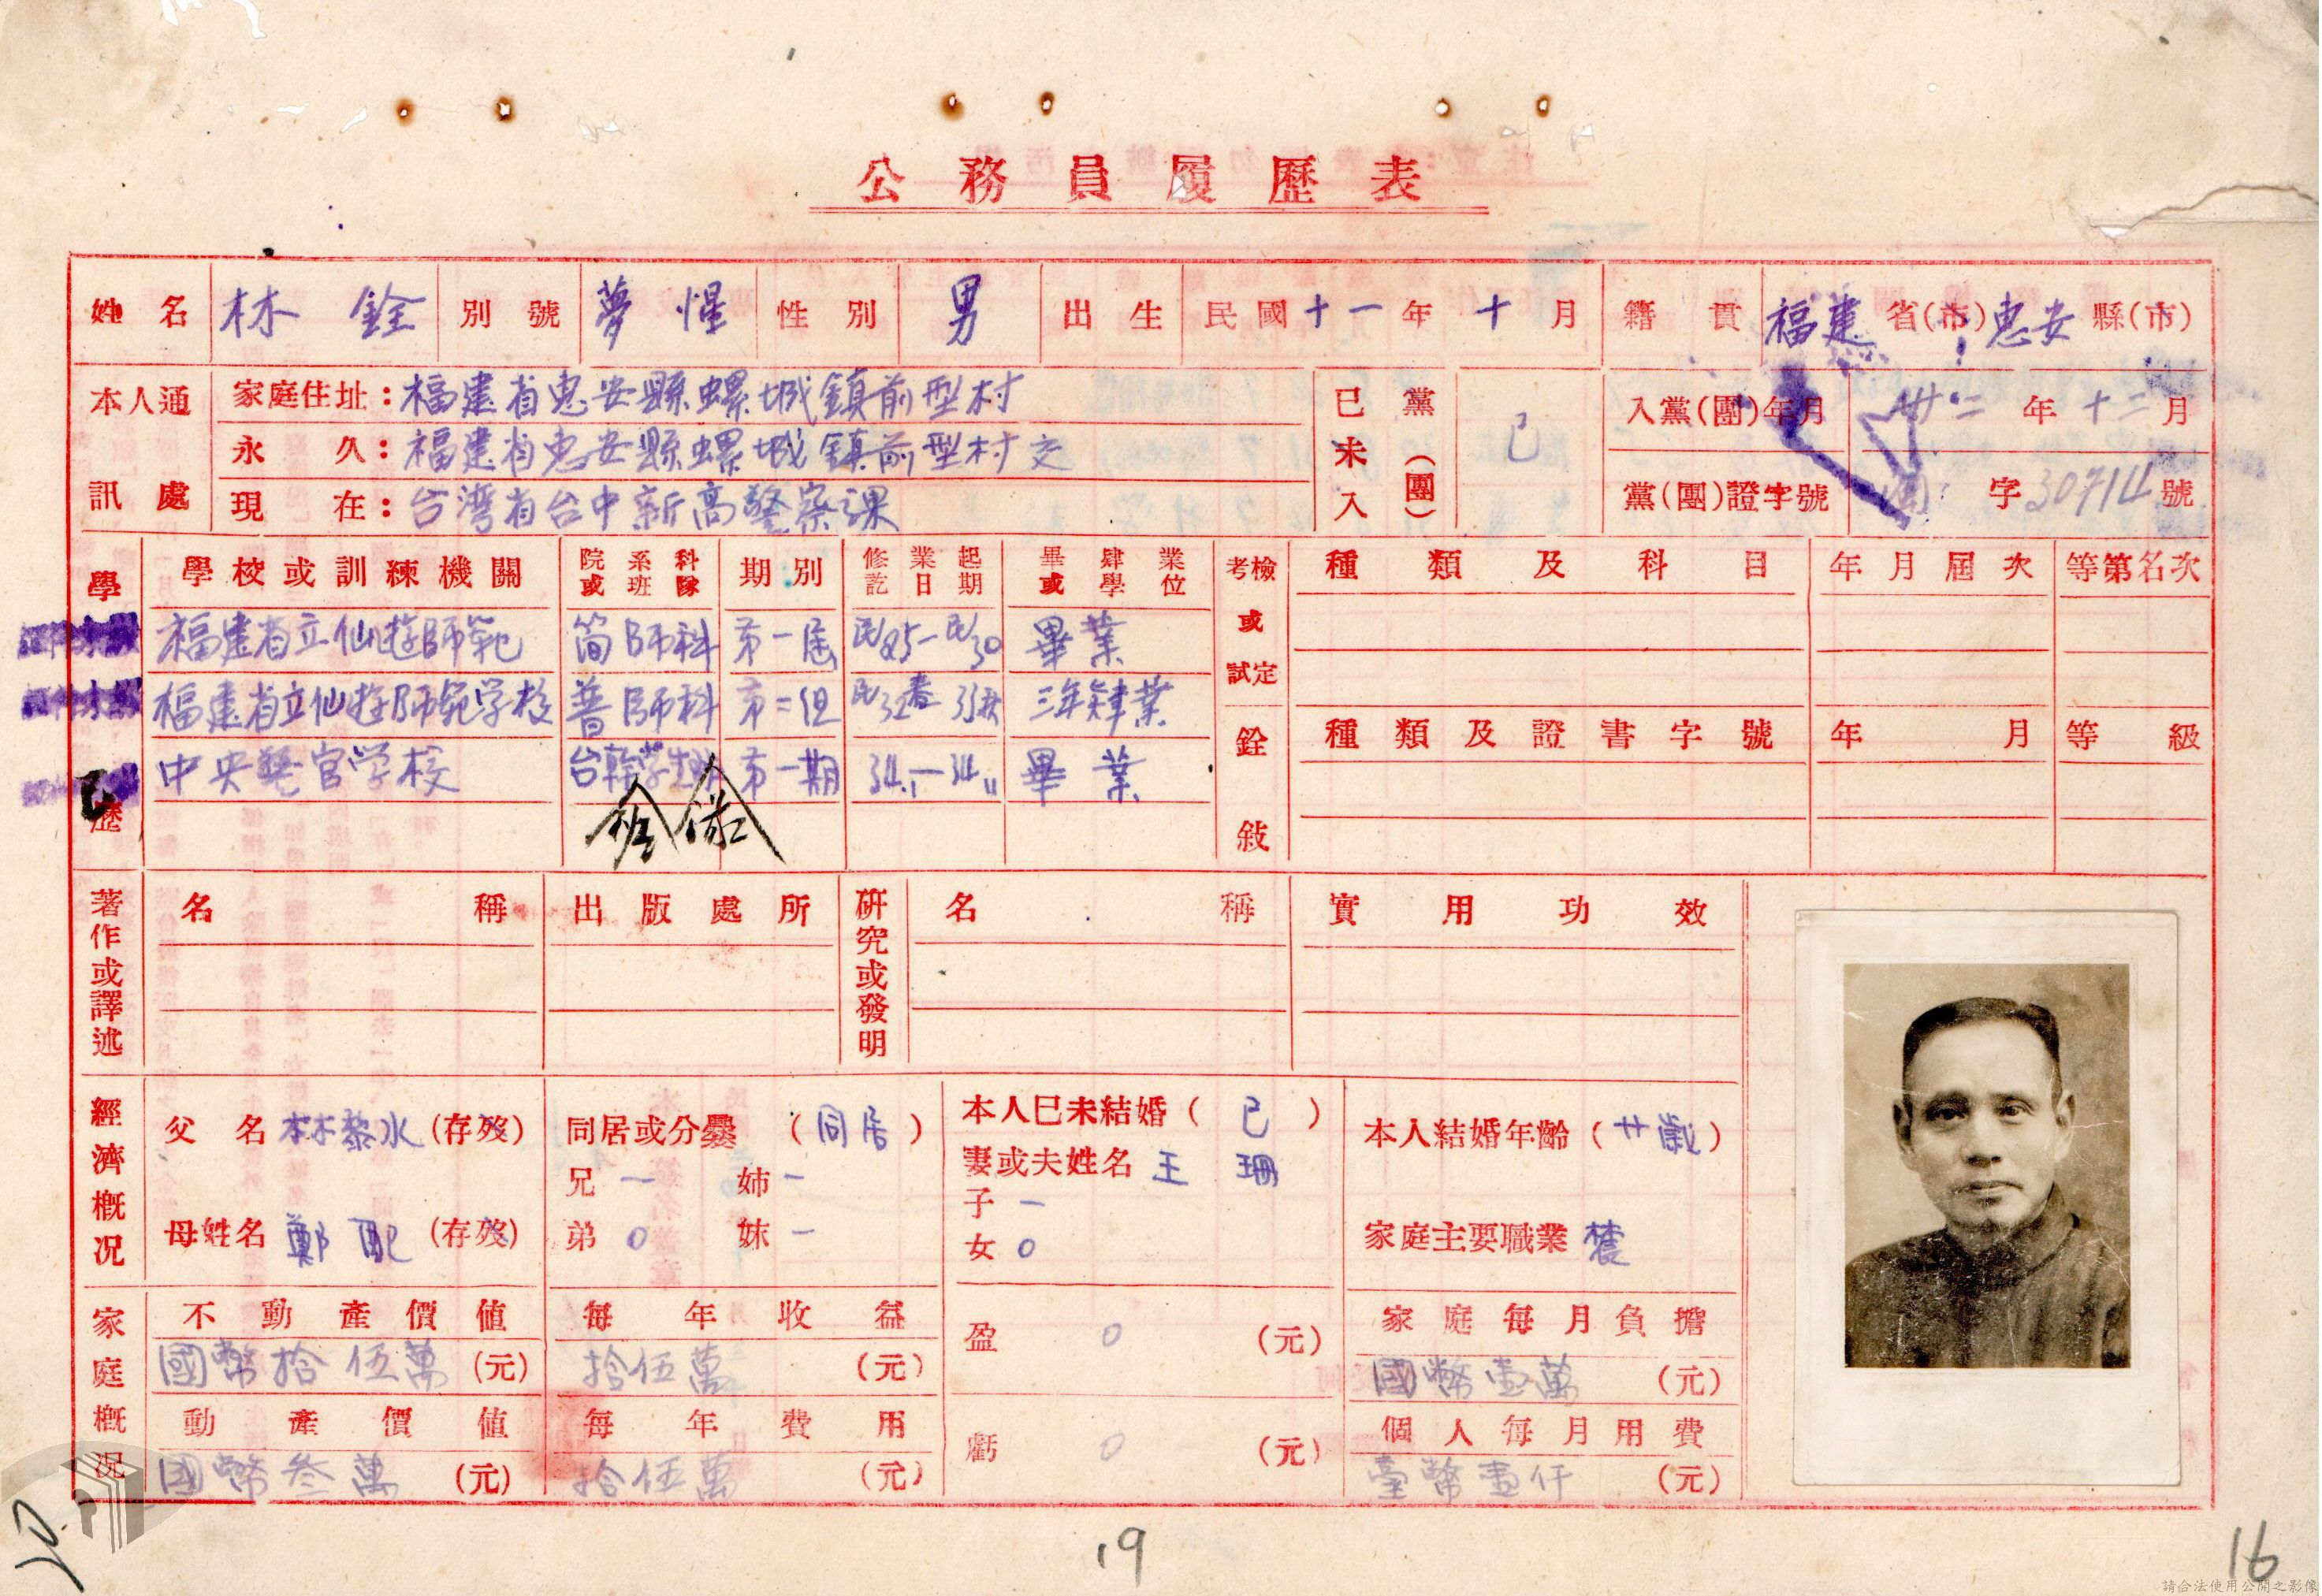 公務員履歷表
姓名 林銓 別號 夢惺 性別 男 出生 民國十一年十月 籍貫 福建省(市)惠安縣(市)
本人通訊處
家庭住址：福建省惠安縣螺城鎮前型村
永久：福建省惠安縣螺城鎮前型村交
現在：台湾省台中新高警察課
已未入黨(團) 已
入黨(團)年月 卅二年十二月
黨(團)證字號 團字30714號
學歷
學校或訓練機關 院或系班科隊 期別 修業起訖日期 畢肄業或學位
福建省立仙遊師範 簡師科 第一屆 民25—民30 畢業
福建省立仙遊师範学校 普師科 第二組 民32春 33秋 三年肄業
中央警官学校 台幹學生班 第一期 34.1—34.11 畢業
考檢或試定 種類及科目 年月屆次 等第名次
銓敍 種類及證書字號 年月 等級
著作或譯述 名稱 出版處所
研究或發明 名稱 實用功效
經濟概況
父名 林黎水 (存歿)
母姓名 鄭配 (存歿)
同居或分爨 (同居)
兄 一 姉 一
弟 0 妹 一
本人已未結婚 (已)
妻或夫姓名 王珊
子 一
女 0
本人結婚年齡 (廿歲)
家庭主要職業 農
家庭概況
不動產價值 每年收益 家庭每月負擔
國幣拾伍萬(元) 拾伍萬(元) 盈 0 (元) 國幣壹萬(元)
動產價值 每年費用 個人每月用費
國幣叁萬(元) 拾伍萬(元) 虧 0 (元) 臺幣壹仟(元)
19
16
請合法使用公開之影像